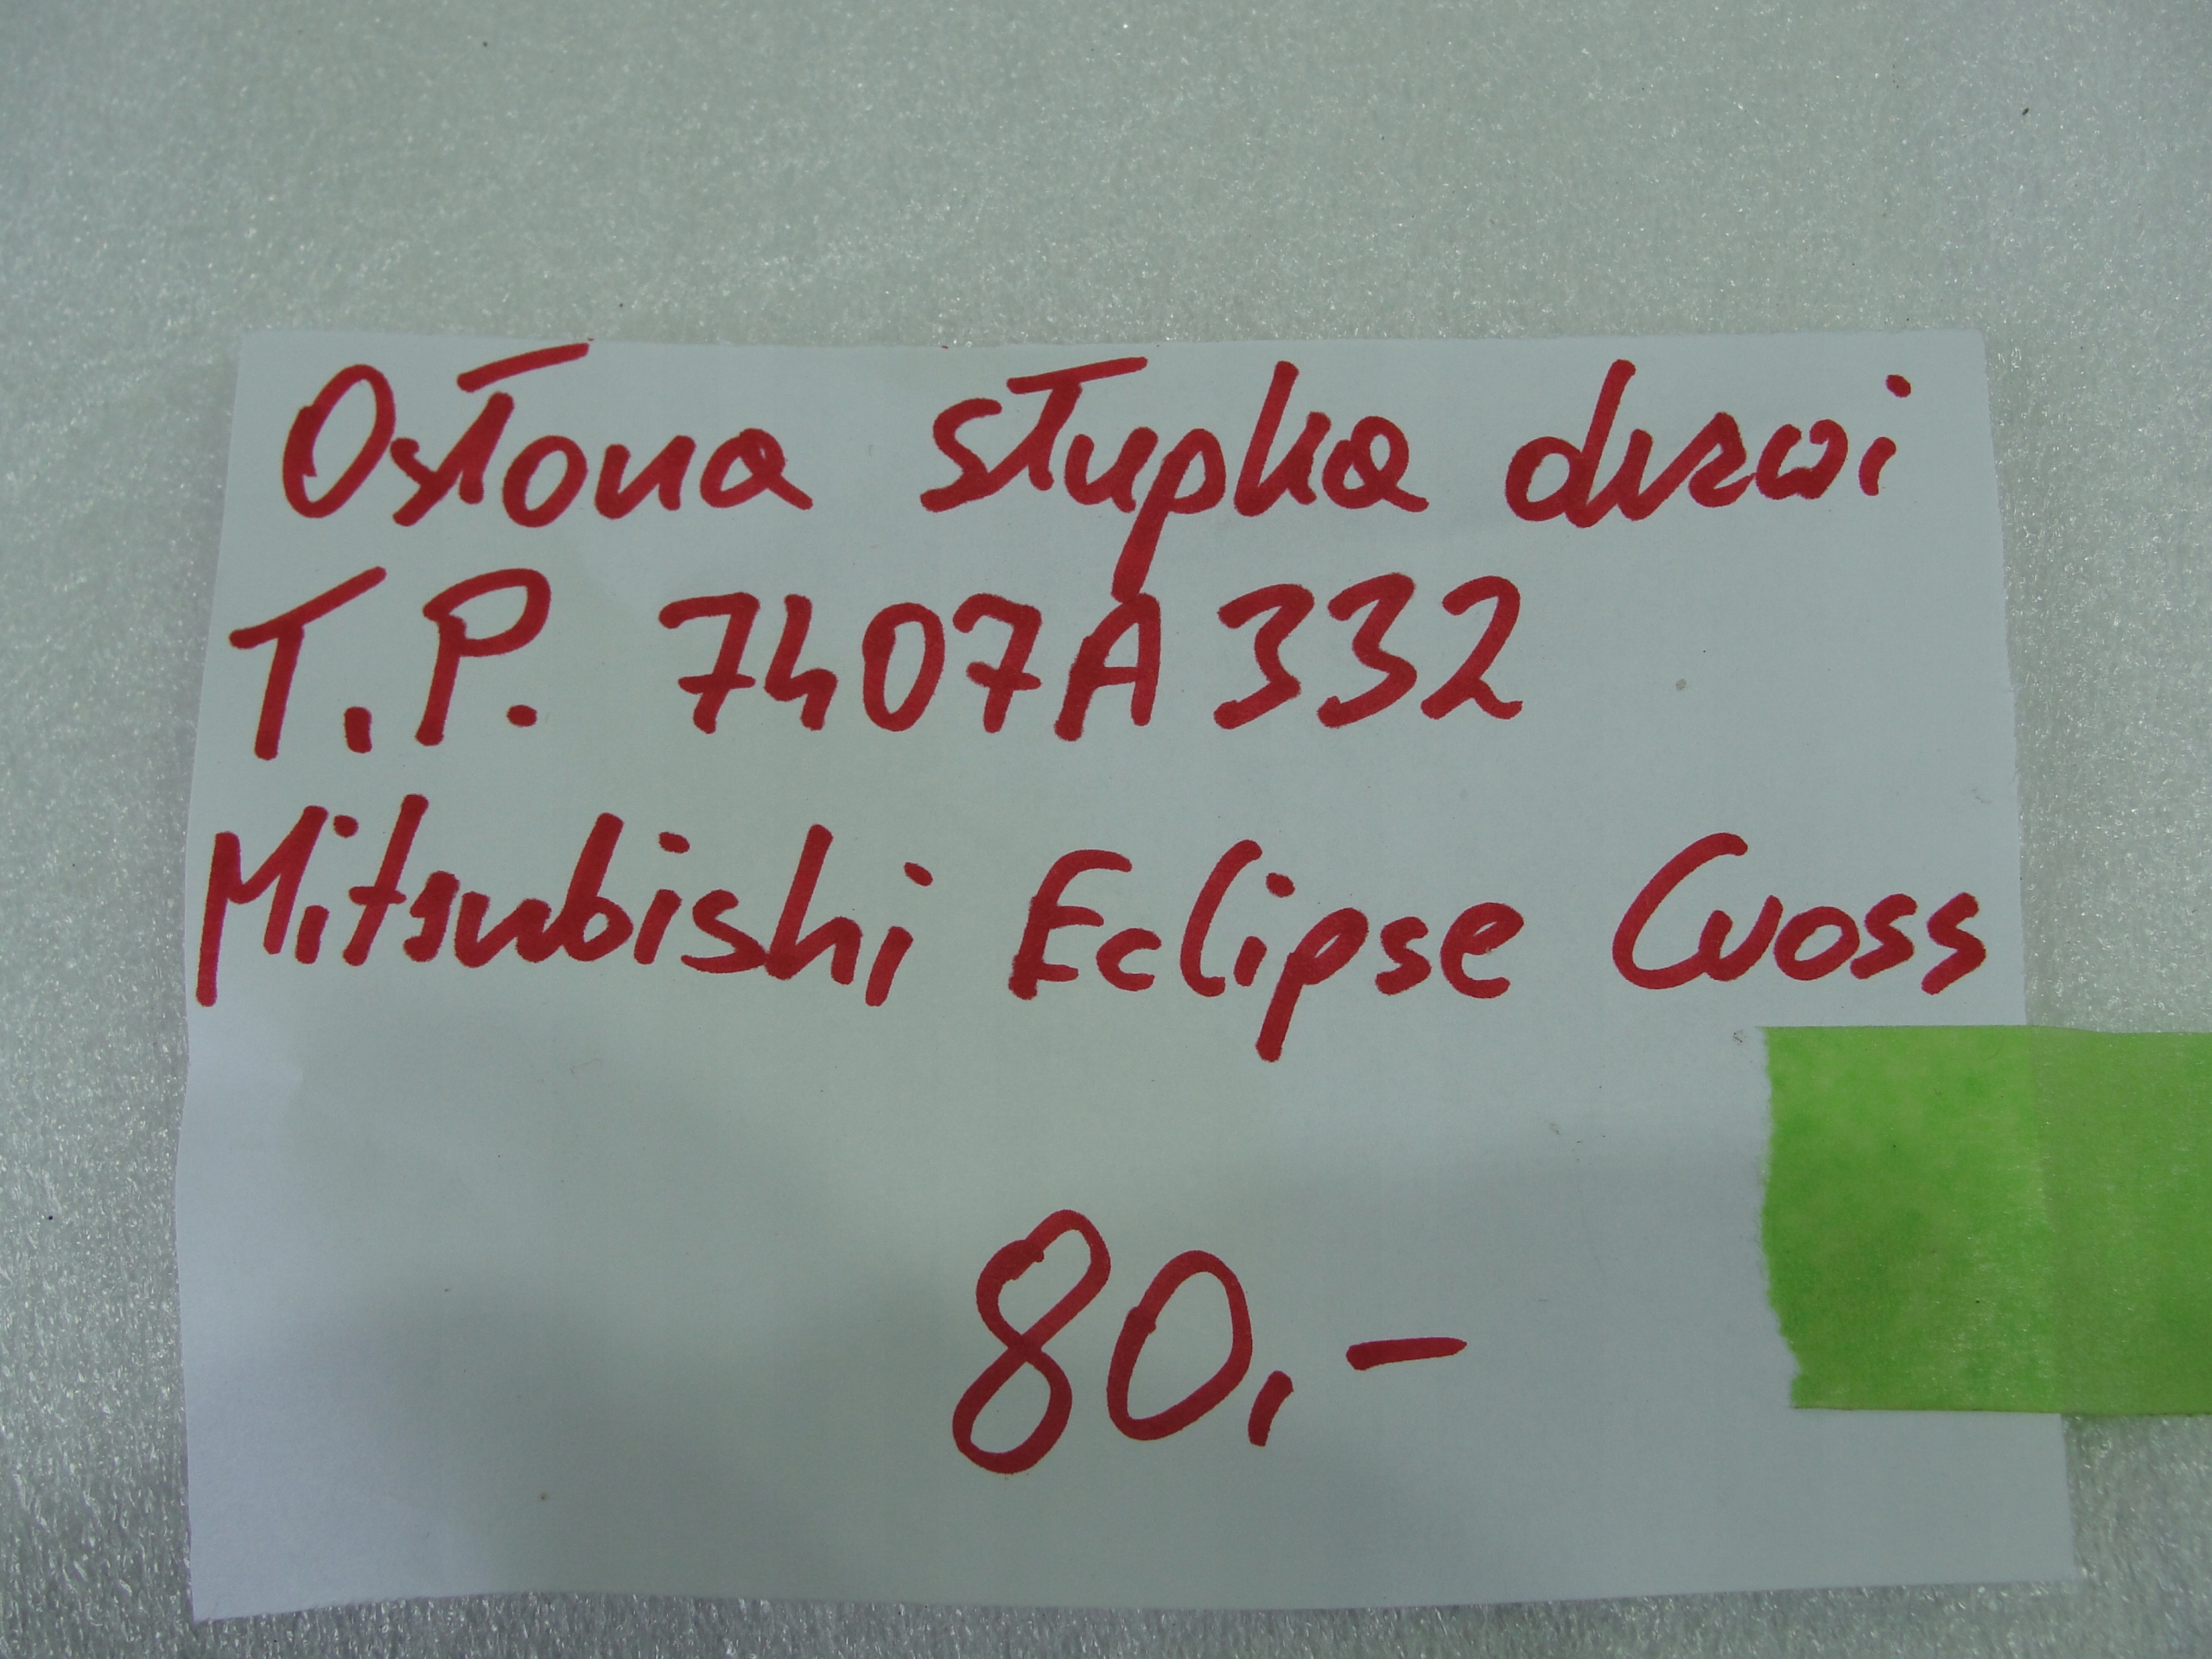 Osłona słupka drzwi
T.P. 7407A332
Mitsubishi Eclipse Cross
80,-